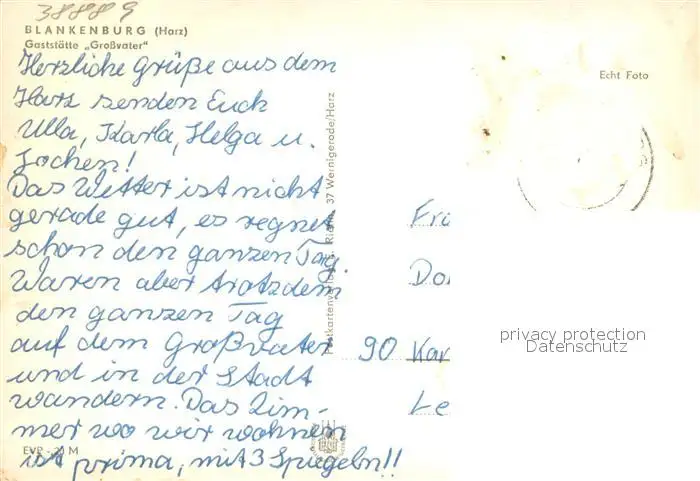 38889
BLANKENBURG (Harz)
Gaststätte „Großvater"
Herzliche Grüße aus dem
Harz senden Euch
Ulla, Karla, Helga u.
Jochen!
Das Wetter ist nicht
gerade gut, es regnet
schon den ganzen Tag.
Waren aber trotzdem
den ganzen Tag
auf dem Großvater
und in der Stadt
wandern. Das Zim-
mer wo wir wohnen
ist prima, mit 3 Spiegeln!!
EVP -,20 M
Postkartenverlag 37 Wernigerode/Harz
Echt Foto
Fra
Do
90 Kar
Le
privacy protection
Datenschutz